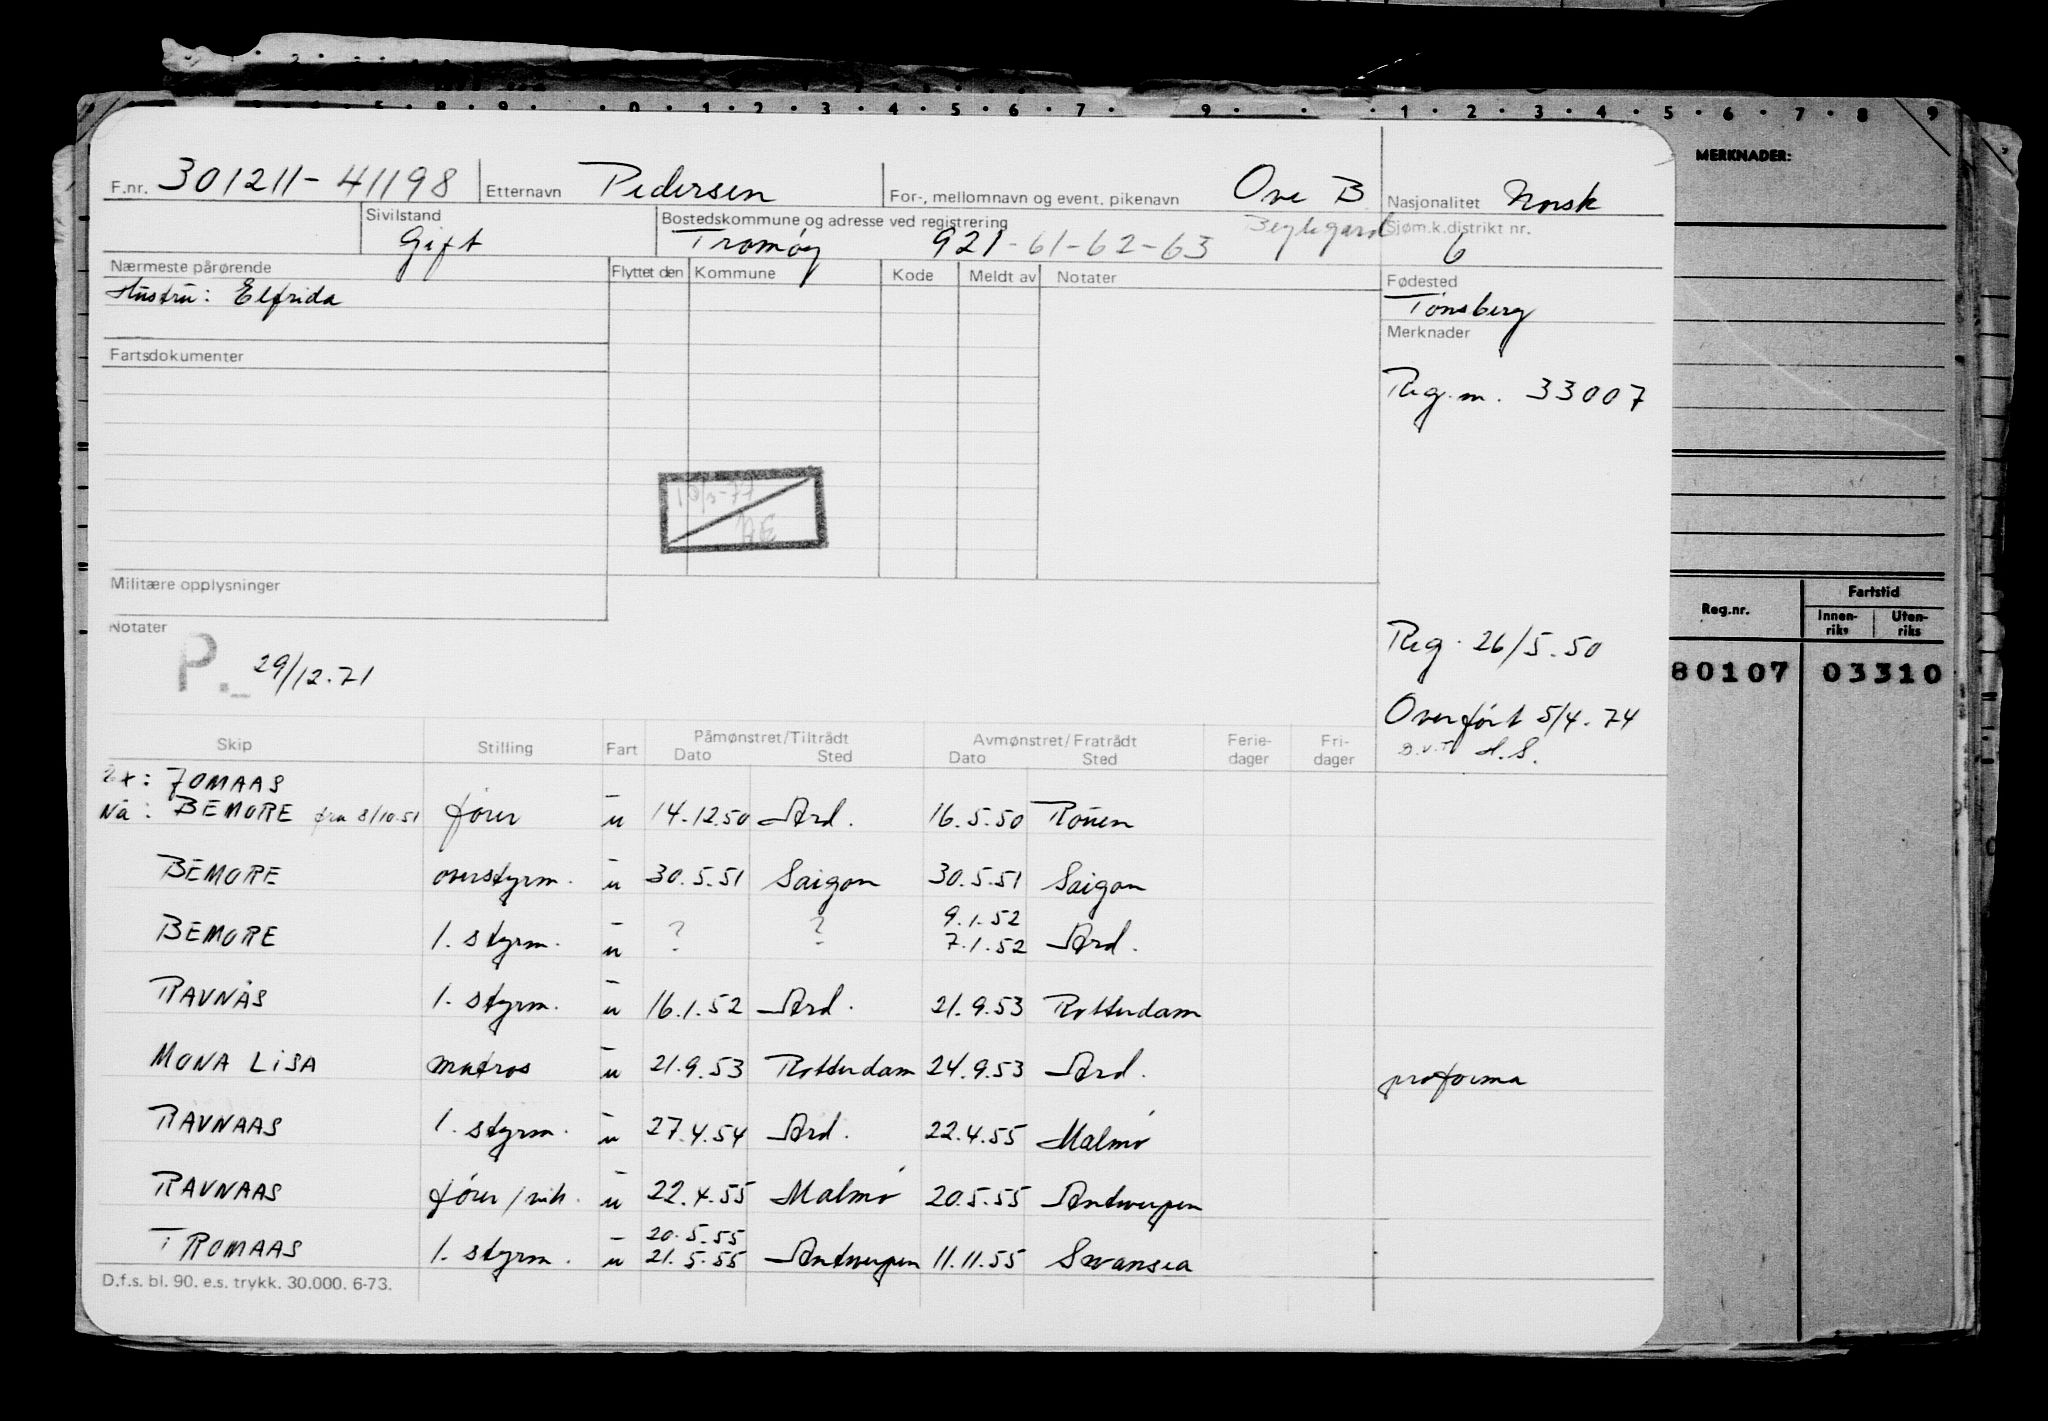 MERKNADER:
F.nr. 301211-41198 Etternavn Pedersen For-, mellomnavn og event. pikenavn Ove B Nasjonalitet Norsk
Sivilstand Gift Bostedskommune og adresse ved registrering Tromøy 921-61-62-63 Sjøm.k.distrikt nr. 6
Nærmeste pårørende Flyttet den Kommune Kode Meldt av Notater Fødested
Hustru: Elfrida Tønsberg
Merknader
Fartsdokumenter
Reg.nr. 33007
Militære opplysninger
Reg.nr. Fartstid
Innen-riks Uten-riks
Notater
P. 29/12.71
Reg. 26/5.50
80107 03310
Overført 5/4.74
H.S.
Skip Stilling Fart Påmønstret/Tiltrådt Dato Sted Avmønstret/Fratrådt Dato Sted Ferie-dager Fri-dager
JOMAAS
Nå: BEMORE fra 8/10.51 fører u 14.12.50 Ard. 16.5.50 Rouen
BEMORE overstyrm. u 30.5.51 Saigon 30.5.51 Saigon
9.1.52
BEMORE 1. styrm. u ? ? 7.1.52 Ard.
RAVNÅS 1. styrm. u 16.1.52 Ard. 21.9.53 Rotterdam
MONA LISA matros u 21.9.53 Rotterdam 24.9.53 Ard. proforma
RAVNAAS 1. styrm. u 27.4.54 Ard. 22.4.55 Malmø
RAVNAAS fører/vik. u 22.4.55 Malmø 20.5.55 Antwerpen
20.5.55
TROMAAS 1. styrm. u 21.5.55 Antwerpen 11.11.55 Swansea
D.f.s. bl. 90. e.s. trykk. 30.000. 6-73.